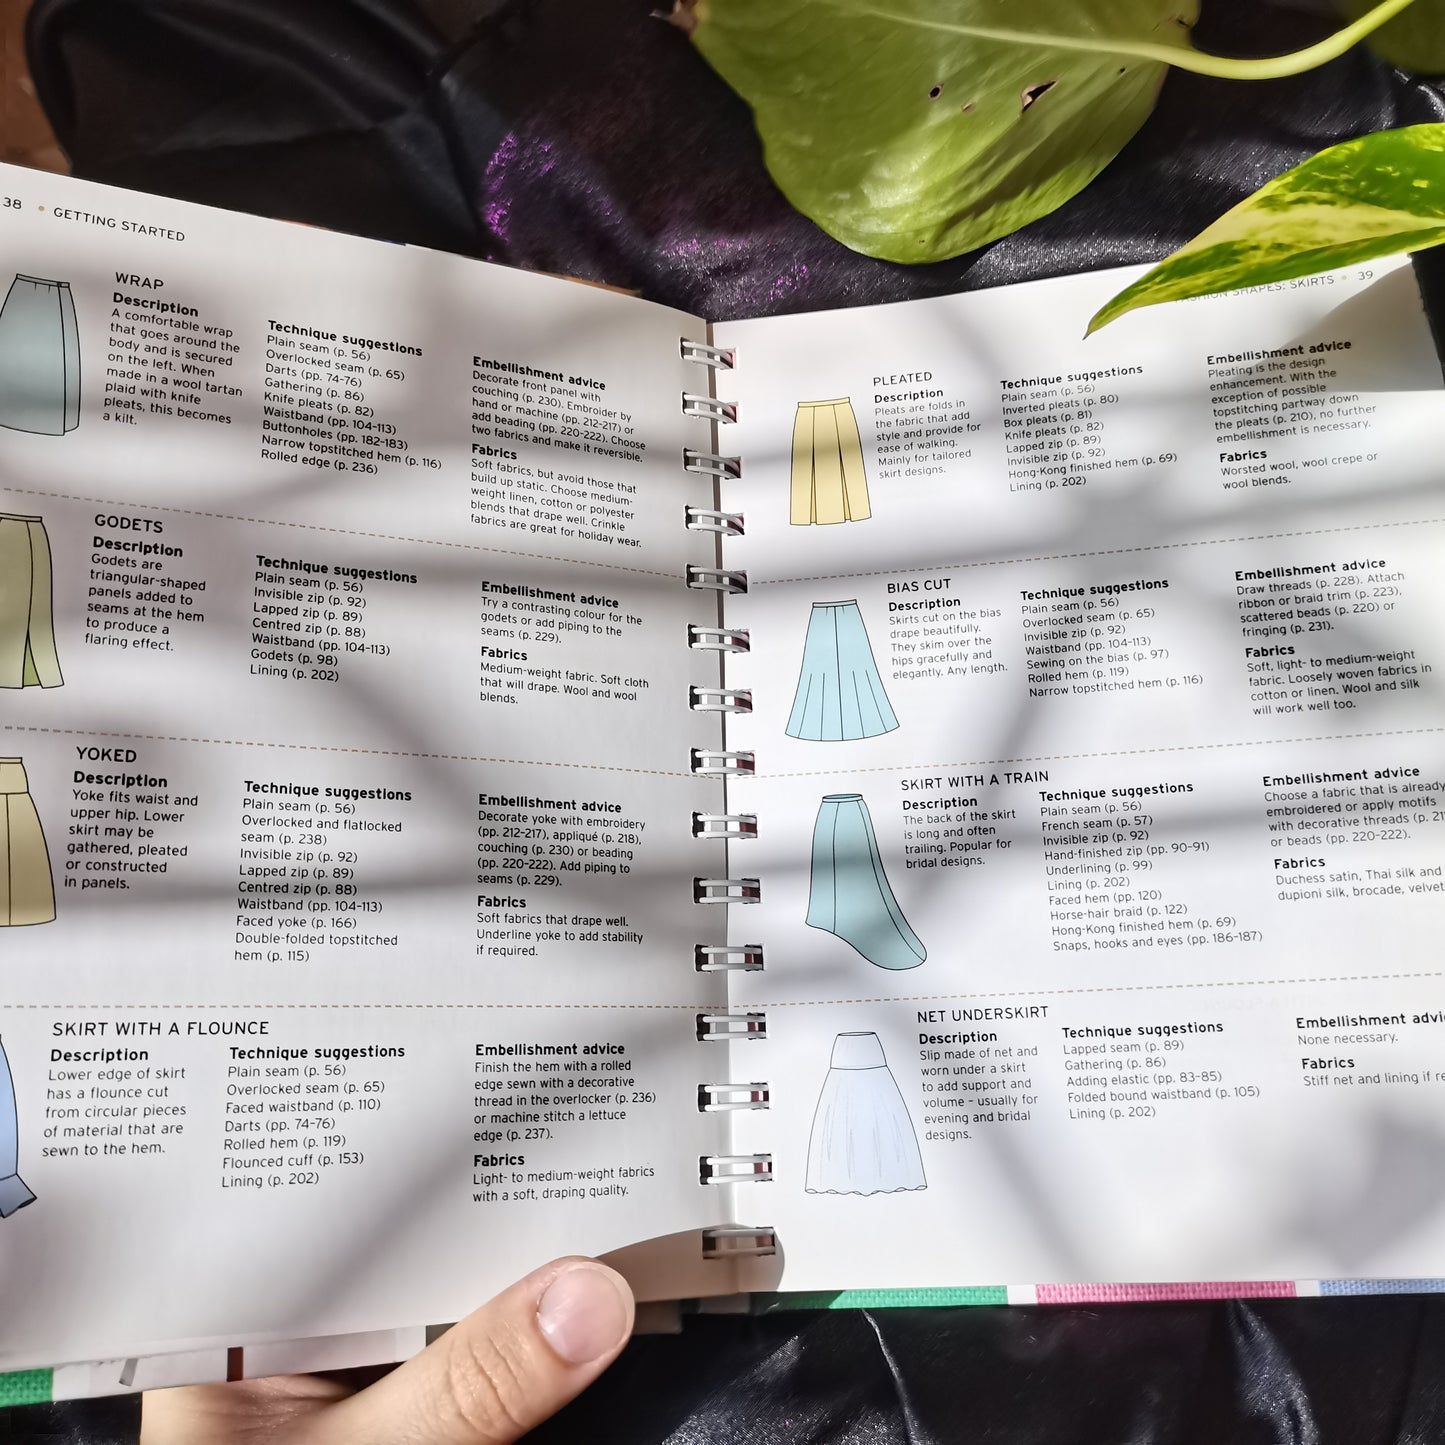 38 • GETTING STARTED
WRAP
Description
A comfortable wrap
that goes around the
body and is secured
on the left. When
made in a wool tartan
plaid with knife
pleats, this becomes
a kilt.
Technique suggestions
Plain seam (p. 56)
Overlocked seam (p. 65)
Darts (pp. 74–76)
Gathering (p. 86)
Knife pleats (p. 82)
Waistband (pp. 104–113)
Buttonholes (pp. 182–183)
Narrow topstitched hem (p. 116)
Rolled edge (p. 236)
Embellishment advice
Decorate front panel with
couching (p. 230). Embroider by
hand or machine (pp. 212–217) or
add beading (pp. 220–222). Choose
two fabrics and make it reversible.
Fabrics
Soft fabrics, but avoid those that
build up static. Choose medium-
weight linen, cotton or polyester
blends that drape well. Crinkle
fabrics are great for holiday wear.
GODETS
Description
Godets are
triangular-shaped
panels added to
seams at the hem
to produce a
flaring effect.
Technique suggestions
Plain seam (p. 56)
Invisible zip (p. 92)
Lapped zip (p. 89)
Centred zip (p. 88)
Waistband (pp. 104–113)
Godets (p. 98)
Lining (p. 202)
Embellishment advice
Try a contrasting colour for the
godets or add piping to the
seams (p. 229).
Fabrics
Medium-weight fabric. Soft cloth
that will drape. Wool and wool
blends.
YOKED
Description
Yoke fits waist and
upper hip. Lower
skirt may be
gathered, pleated
or constructed
in panels.
Technique suggestions
Plain seam (p. 56)
Overlocked and flatlocked
seam (p. 238)
Invisible zip (p. 92)
Lapped zip (p. 89)
Centred zip (p. 88)
Waistband (pp. 104–113)
Faced yoke (p. 166)
Double-folded topstitched
hem (p. 115)
Embellishment advice
Decorate yoke with embroidery
(pp. 212–217), appliqué (p. 218),
couching (p. 230) or beading
(pp. 220–222). Add piping to
seams (p. 229).
Fabrics
Soft fabrics that drape well.
Underline yoke to add stability
if required.
SKIRT WITH A FLOUNCE
Description
Lower edge of skirt
has a flounce cut
from circular pieces
of material that are
sewn to the hem.
Technique suggestions
Plain seam (p. 56)
Overlocked seam (p. 65)
Faced waistband (p. 110)
Darts (pp. 74–76)
Rolled hem (p. 119)
Flounced cuff (p. 153)
Lining (p. 202)
Embellishment advice
Finish the hem with a rolled
edge sewn with a decorative
thread in the overlocker (p. 236)
or machine stitch a lettuce
edge (p. 237).
Fabrics
Light- to medium-weight fabrics
with a soft, draping quality.
SHAPES: SKIRTS • 39
PLEATED
Description
Pleats are folds in
the fabric that add
style and provide for
ease of walking.
Mainly for tailored
skirt designs.
Technique suggestions
Plain seam (p. 56)
Inverted pleats (p. 80)
Box pleats (p. 81)
Knife pleats (p. 82)
Lapped zip (p. 89)
Invisible zip (p. 92)
Hong-Kong finished hem (p. 69)
Lining (p. 202)
Embellishment advice
Pleating is the design
enhancement. With the
exception of possible
topstitching partway down
the pleats (p. 210), no further
embellishment is necessary.
Fabrics
Worsted wool, wool crepe or
wool blends.
BIAS CUT
Description
Skirts cut on the bias
drape beautifully.
They skim over the
hips gracefully and
elegantly. Any length.
Technique suggestions
Plain seam (p. 56)
Overlocked seam (p. 65)
Invisible zip (p. 92)
Waistband (pp. 104–113)
Sewing on the bias (p. 97)
Rolled hem (p. 119)
Narrow topstitched hem (p. 116)
Embellishment advice
Draw threads (p. 228). Attach
ribbon or braid trim (p. 223),
scattered beads (p. 220) or
fringing (p. 231).
Fabrics
Soft, light- to medium-weight
fabric. Loosely woven fabrics in
cotton or linen. Wool and silk
will work well too.
SKIRT WITH A TRAIN
Description
The back of the skirt
is long and often
trailing. Popular for
bridal designs.
Technique suggestions
Plain seam (p. 56)
French seam (p. 57)
Invisible zip (p. 92)
Hand-finished zip (pp. 90–91)
Underlining (p. 99)
Lining (p. 202)
Faced hem (pp. 120)
Horse-hair braid (p. 122)
Hong-Kong finished hem (p. 69)
Snaps, hooks and eyes (pp. 186–187)
Embellishment advice
Choose a fabric that is already
embroidered or apply motifs
with decorative threads (p. 21
or beads (pp. 220–222).
Fabrics
Duchess satin, Thai silk and
dupioni silk, brocade, velvet
NET UNDERSKIRT
Description
Slip made of net and
worn under a skirt
to add support and
volume – usually for
evening and bridal
designs.
Technique suggestions
Lapped seam (p. 89)
Gathering (p. 86)
Adding elastic (pp. 83–85)
Folded bound waistband (p. 105)
Lining (p. 202)
Embellishment advi
None necessary.
Fabrics
Stiff net and lining if re